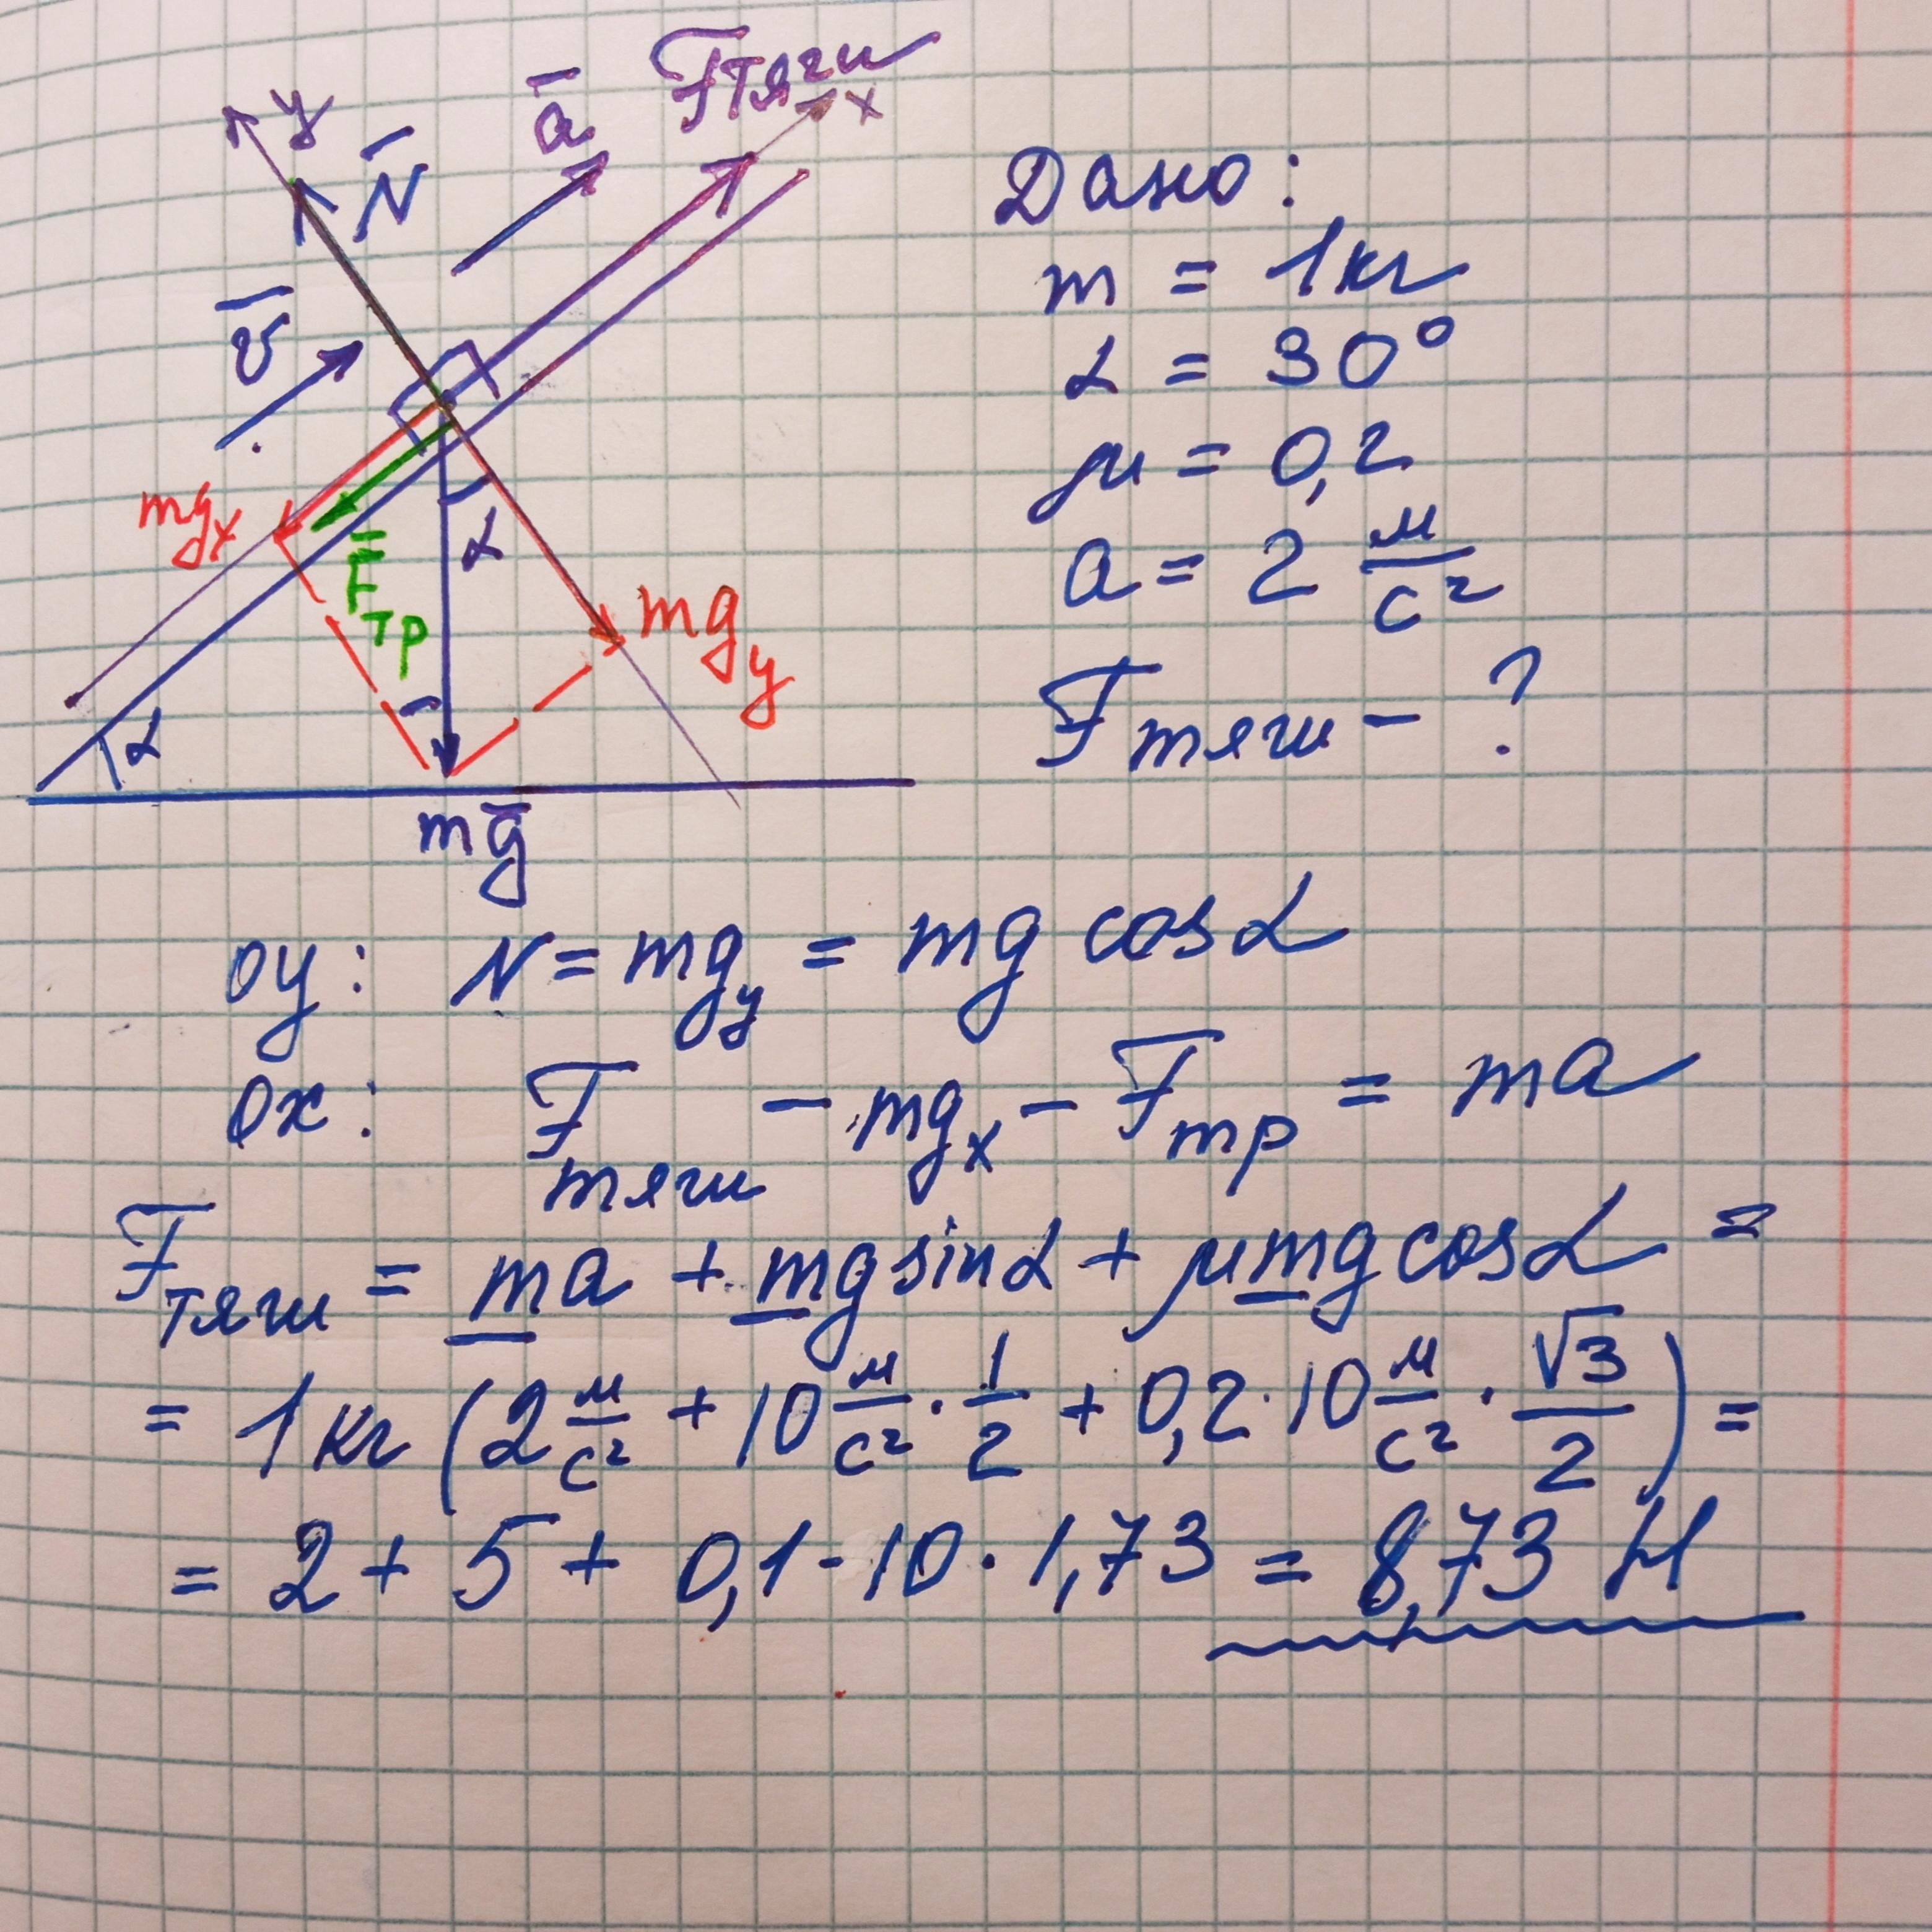 y
N̄
ā
Fтяги
x
v̄
mgx
F̄тр
α
mgy
α
mḡ
Дано:
m = 1кг
α = 30°
μ = 0,2
a = 2 м/с²
Fтяги - ?
oy: N = mgy = mg cosα
ox: Fтяги - mgx - Fтр = ma
Fтяги = ma + mg sinα + μmg cosα =
= 1кг (2 м/с² + 10 м/с² · 1/2 + 0,2 · 10 м/с² · √3/2) =
= 2 + 5 + 0,1 · 10 · 1,73 = 8,73 Н